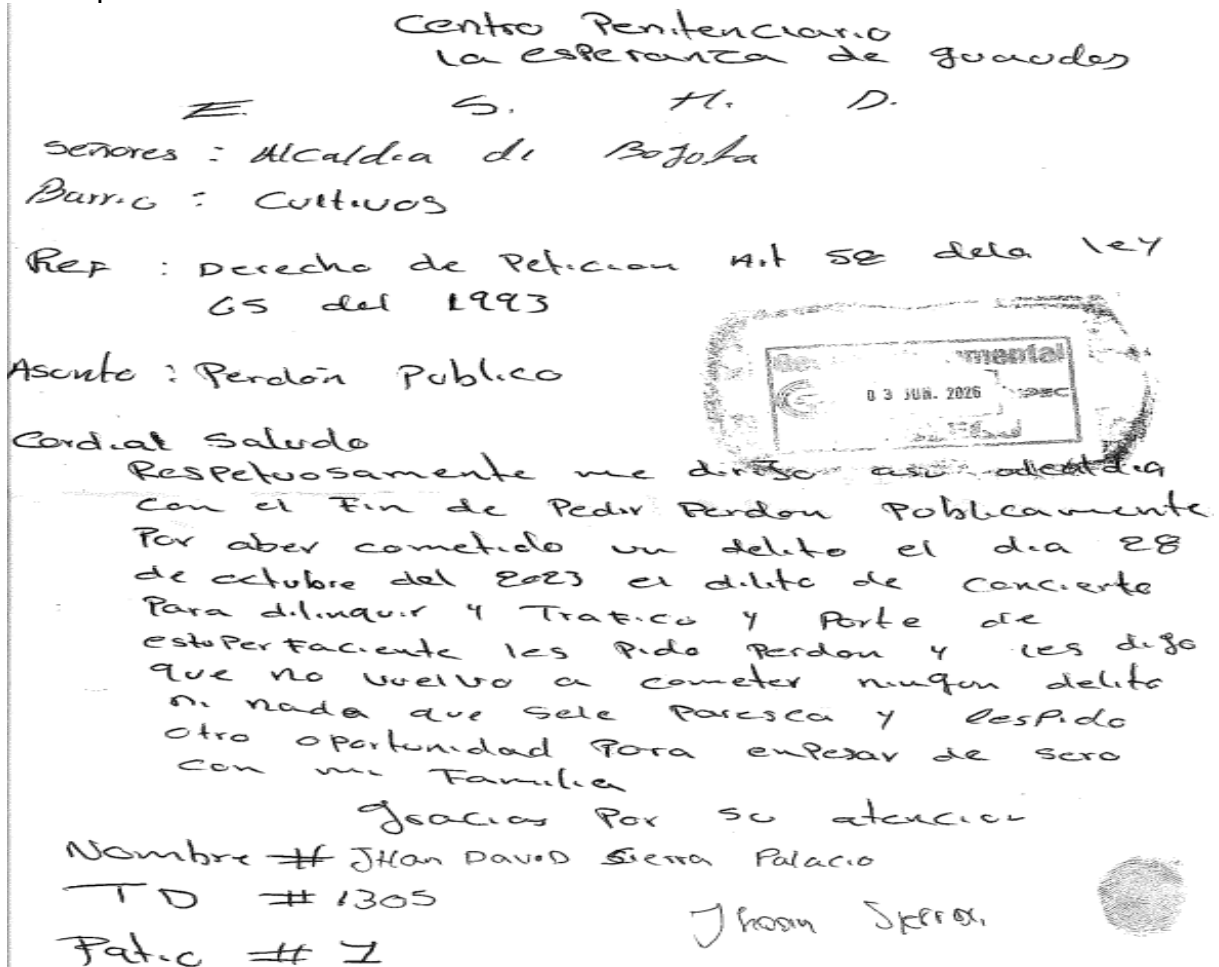 Centro Penitenciario
la esperanza de guaudas
E. S. H. D.
Señores : Alcaldia de Bogota
Barrio : Cultivos
Ref : Derecho de Peticion Art 58 dela ley
65 del 1993
Asunto : Perdón Publico
03 JUN. 2026
Cordial saludo
Respetuosamente me dirijo asu
con el Fin de Pedir Perdon Poblicamente
Por aber cometido un delito el dia 28
de octubre del 2023 el dilito de concierto
Para dilinquir y Trafico y Porte de
estoPerfaciente les Pido Perdon y les digo
que no vuelvo a cometer ningun delito
ni nada que sele Paresca y lesPido
otro oportunidad Para enPesar de sero
con mi Familia
gracias Por su atencion
Nombre # JHan DaviD Sierra Palacio
TD # 1305
Jhoan Sierra.
Patio # 1